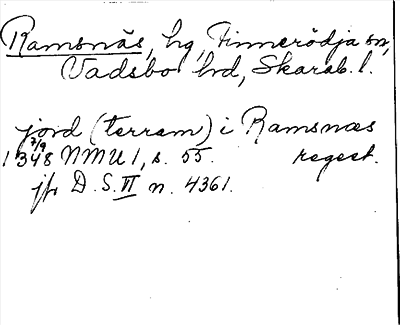 Ramsnäs, hg, Finnerödja sn,
Vadsbo hd, Skarab. l.
jord (terram) i Ramsnæs
7/9
1348 NMU 1, s. 55. regest.
jfr D. S. VI n. 4361.